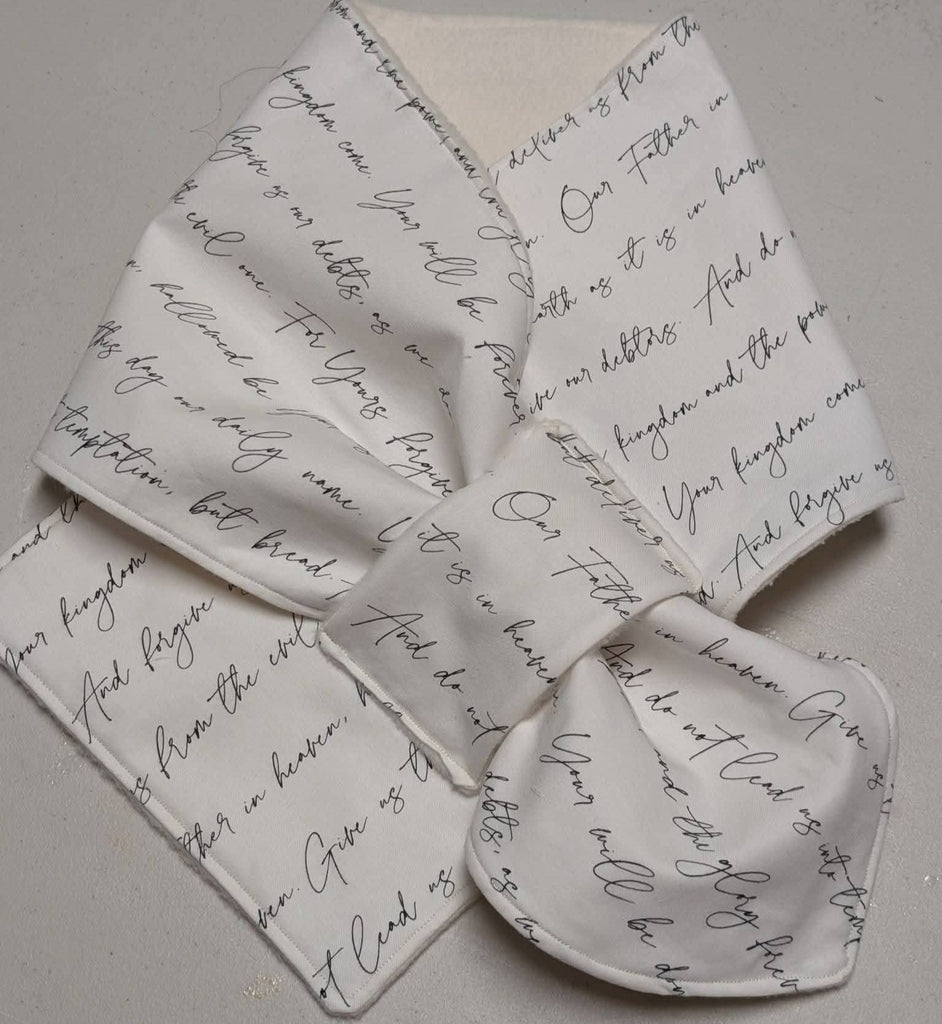 and the power, and the
kingdom come. Your will be
forgive us our debts, as we
the evil one. For Yours
forever
hallowed be
name.
this day our daily
bread.
temptation, but
forgive
deliver us from the
Our Father in
earth as it is in heaven
And do
give our debtors.
kingdom and the pow
Your kingdom come
And forgive us
but deliver us
Our Fathe
it is in heaven
And do not
in heaven. Give us
And do not lead us into temp
and the glory forev
Your will be don
debts, as we
and th
your kingdom
And forgive
us from the evil
ther in heaven, h
ven. Give us th
ot lead us